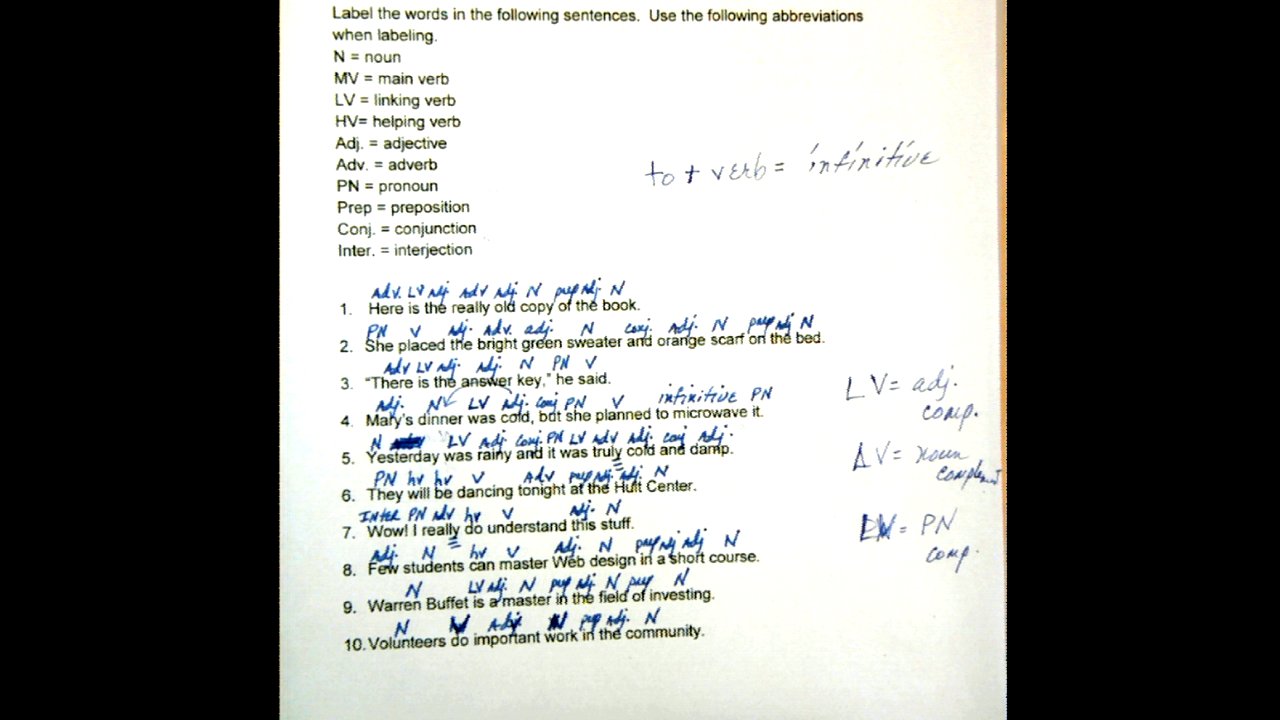 Label the words in the following sentences. Use the following abbreviations
when labeling.
N = noun
MV = main verb
LV = linking verb
HV= helping verb
Adj. = adjective
Adv. = adverb
PN = pronoun
Prep = preposition
Conj. = conjunction
Inter. = interjection
to + verb = infinitive
Adv. LV Adj. Adv Adj. N prep Adj. N
1. Here is the really old copy of the book.
PN V Adj. Adv. adj. N conj. Adj. N prep Adj N
2. She placed the bright green sweater and orange scarf on the bed.
Adv LV Adj. Adj. N PN V
3. "There is the answer key," he said.
Adj. N LV Adj. Conj PN V infinitive PN
4. Mary's dinner was cold, but she planned to microwave it.
LV = adj. comp.
N LV Adj Conj. PN LV Adv Adj. conj Adj.
5. Yesterday was rainy and it was truly cold and damp.
LV = noun complement
PN hv hv V Adv prep Adj. Adj. N
6. They will be dancing tonight at the Hult Center.
Inter PN Adv hv V Adj. N
7. Wow! I really do understand this stuff.
LV = PN comp.
Adj. N hv V Adj. N prep Adj Adj N
8. Few students can master Web design in a short course.
N LV Adj. N prep Adj. N prep N
9. Warren Buffet is a master in the field of investing.
N V Adj N prep Adj. N
10. Volunteers do important work in the community.